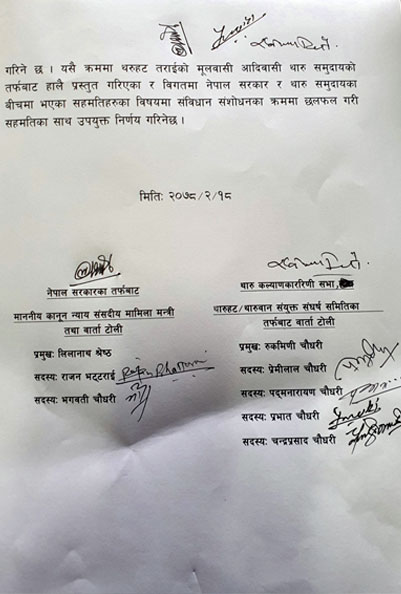 गरिने छ । यसै क्रममा थरुहट तराईको मूलवासी आदिवासी थारु समुदायको
तर्फबाट हालै प्रस्तुत गरिएका र विगतमा नेपाल सरकार र थारु समुदायका
बीचमा भएका सहमतिहरुका विषयमा संविधान संशोधनका क्रममा छलफल गरी
सहमतिका साथ उपयुक्त निर्णय गरिनेछ ।
मितिः २०७८/२/१८
नेपाल सरकारका तर्फबाट
माननीय कानून न्याय संसदीय मामिला मन्त्री
तथा वार्ता टोली
प्रमुखः लिलानाथ श्रेष्ठ
सदस्यः राजन भट्टराई Rajan Bhattarai
सदस्यः भगवती चौधरी
थारु कल्याणकारिणी सभा,
थारुहट/थारुवान संयुक्त संघर्ष समितिका
तर्फबाट वार्ता टोली
प्रमुखः रुकमिणी चौधरी
सदस्यः प्रेमीलाल चौधरी
सदस्यः पद्मनारायण चौधरी
सदस्यः प्रभात चौधरी
सदस्यः चन्द्रप्रसाद चौधरी